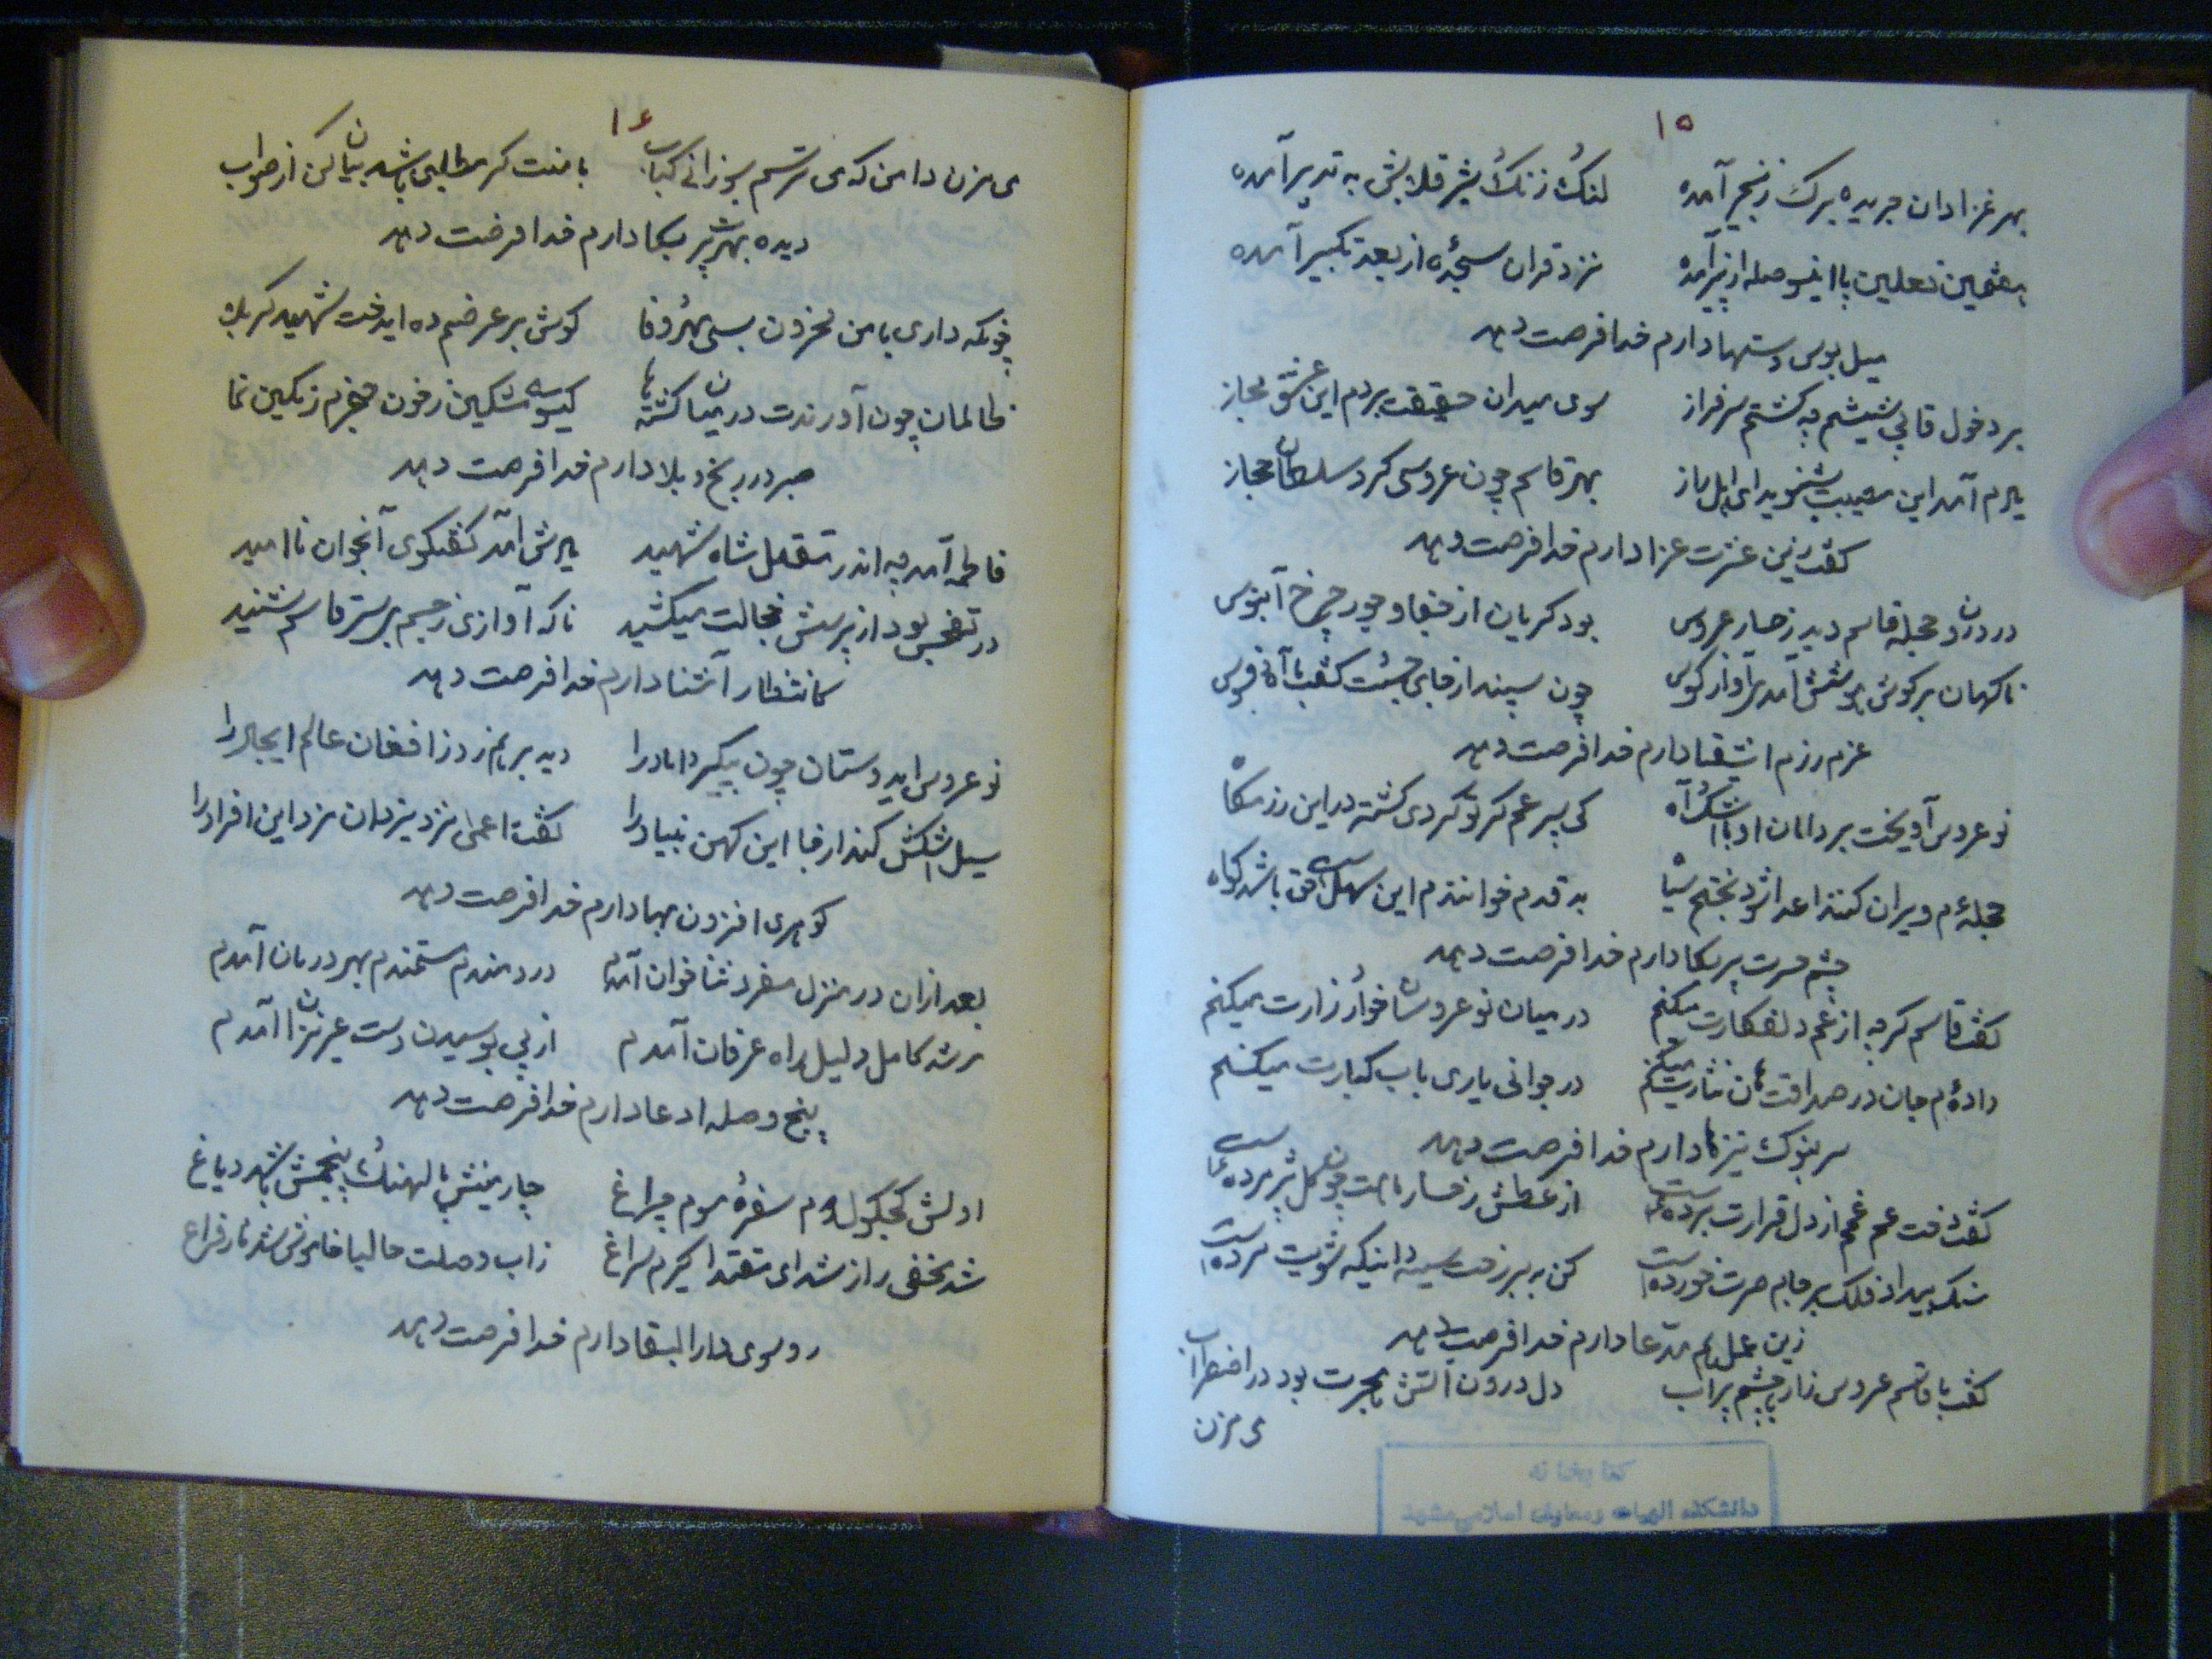 ۱۵
بهر عزادان جریده برک زنجیر آمده لنک زنک بشیر قلابش به تدبیر آمده
هفتمین نعلین پا این وصله از پیر آمده نزد قران سجده از بعد تکبیر آمده
میل بوس دستها دارم خدا فرصت دهد
بر دخول قاپی ششم چه کشتم سرفراز سوی میدان حقیقت بردم این عشق مجاز
یادم آمد این مصیبت بشنوید ای اهل راز بهر قاسم چون عروسی کرد سلطان حجاز
کفت زین عشرت عزا دارم خدا فرصت دهد
در درون حجله قاسم دید رخسار عروس بود کریان از جفا و جور چرخ آبنوس
ناکهان بر کوش هوشش آمد آواز کوس چون سپند از جای جست کفت با آه فسوس
عزم رزم اشقیا دارم خدا فرصت دهد
نو عروس آویخت بر دامان او با اشک و آه کی پسر عم کر تو کردی کشته در این رزمکاه
حجله‌ام ویران کنند اعدا شود بختم سیاه بد قدم خوانندم این سهل است حق باشد کواه
چشم حسرت پر بکا دارم خدا فرصت دهد
کفت قاسم کرچه از غم دلفکارت میکنم در میان نو عروسان خوار و زارت میکنم
داده‌ام جان در صداقت جان نثارت میکنم در جوانی یاری باب کبارت میکنم
سر بنوک نیزها دارم خدا فرصت دهد
کفت دخت عم غمم از دل قرارت برده است از عطش رخسار ماهت چون کل پژمرده است
سنک بیداد فلک بر جام حسرت خورده است کن به بر رخت سیه اینکه شویت مرده است
زین عمل هم مدعا دارم خدا فرصت دهد
کفت با قاسم عروس زار با چشم پر آب دل درون آتش هجرت بود در اضطراب
می مزن
۱۶
می مزن دامن که می ترسم بسوزانی کباب با منت کر مطلبی باشد بیان کن از صواب
دیده بهرت پر بکا دارم خدا فرصت دهد
چونکه داری با من محزون بسی مهر و وفا کوش بر عرضم ده ای دخت شهید کربلا
ظالمان چون آورندت در میان کشته‌ها کیسوی مشکین ز خون حنجرم رنکین نما
صبر در رنج و بلا دارم خدا فرصت دهد
فاطمه آمد چه اندر مقتل شاه شهید یادش آمد کفتکوی آنجوان نا امید
در تفحص بود از پرسش خجالت میکشید ناکه آوازی ز جسم بی سر قاسم شنید
کانتظار آشنا دارم خدا فرصت دهد
نو عروس ای دوستان چون پیکر داماد را دید بر هم زد ز افغان عالم ایجاد را
سیل اشکش کند از جا این کهن بنیاد را کفت اعمی نزد یزدان مزد این افراد را
کوهری افزون بها دارم خدا فرصت دهد
بعد ازان در منزل مفرد ثنا خوان آمدم دردمندم مستمندم بهر درمان آمدم
مرشد کامل دلیل راه عرفان آمدم از پی بوسیدن دست عزیزان آمدم
پنج وصله ادعا دارم خدا فرصت دهد
اولش کجکول دوم سفره سوم چراغ چارمینش پالهنک پنجمش باشد دباغ
شد مخفی راز شد ای مقتدا کیرم سراغ زاب وصلت حالیا خاموش شد نار فراغ
رو سوی دار البقا دارم خدا فرصت دهد
کتابخانه
دانشکده الهیات و معارف اسلامی مشهد